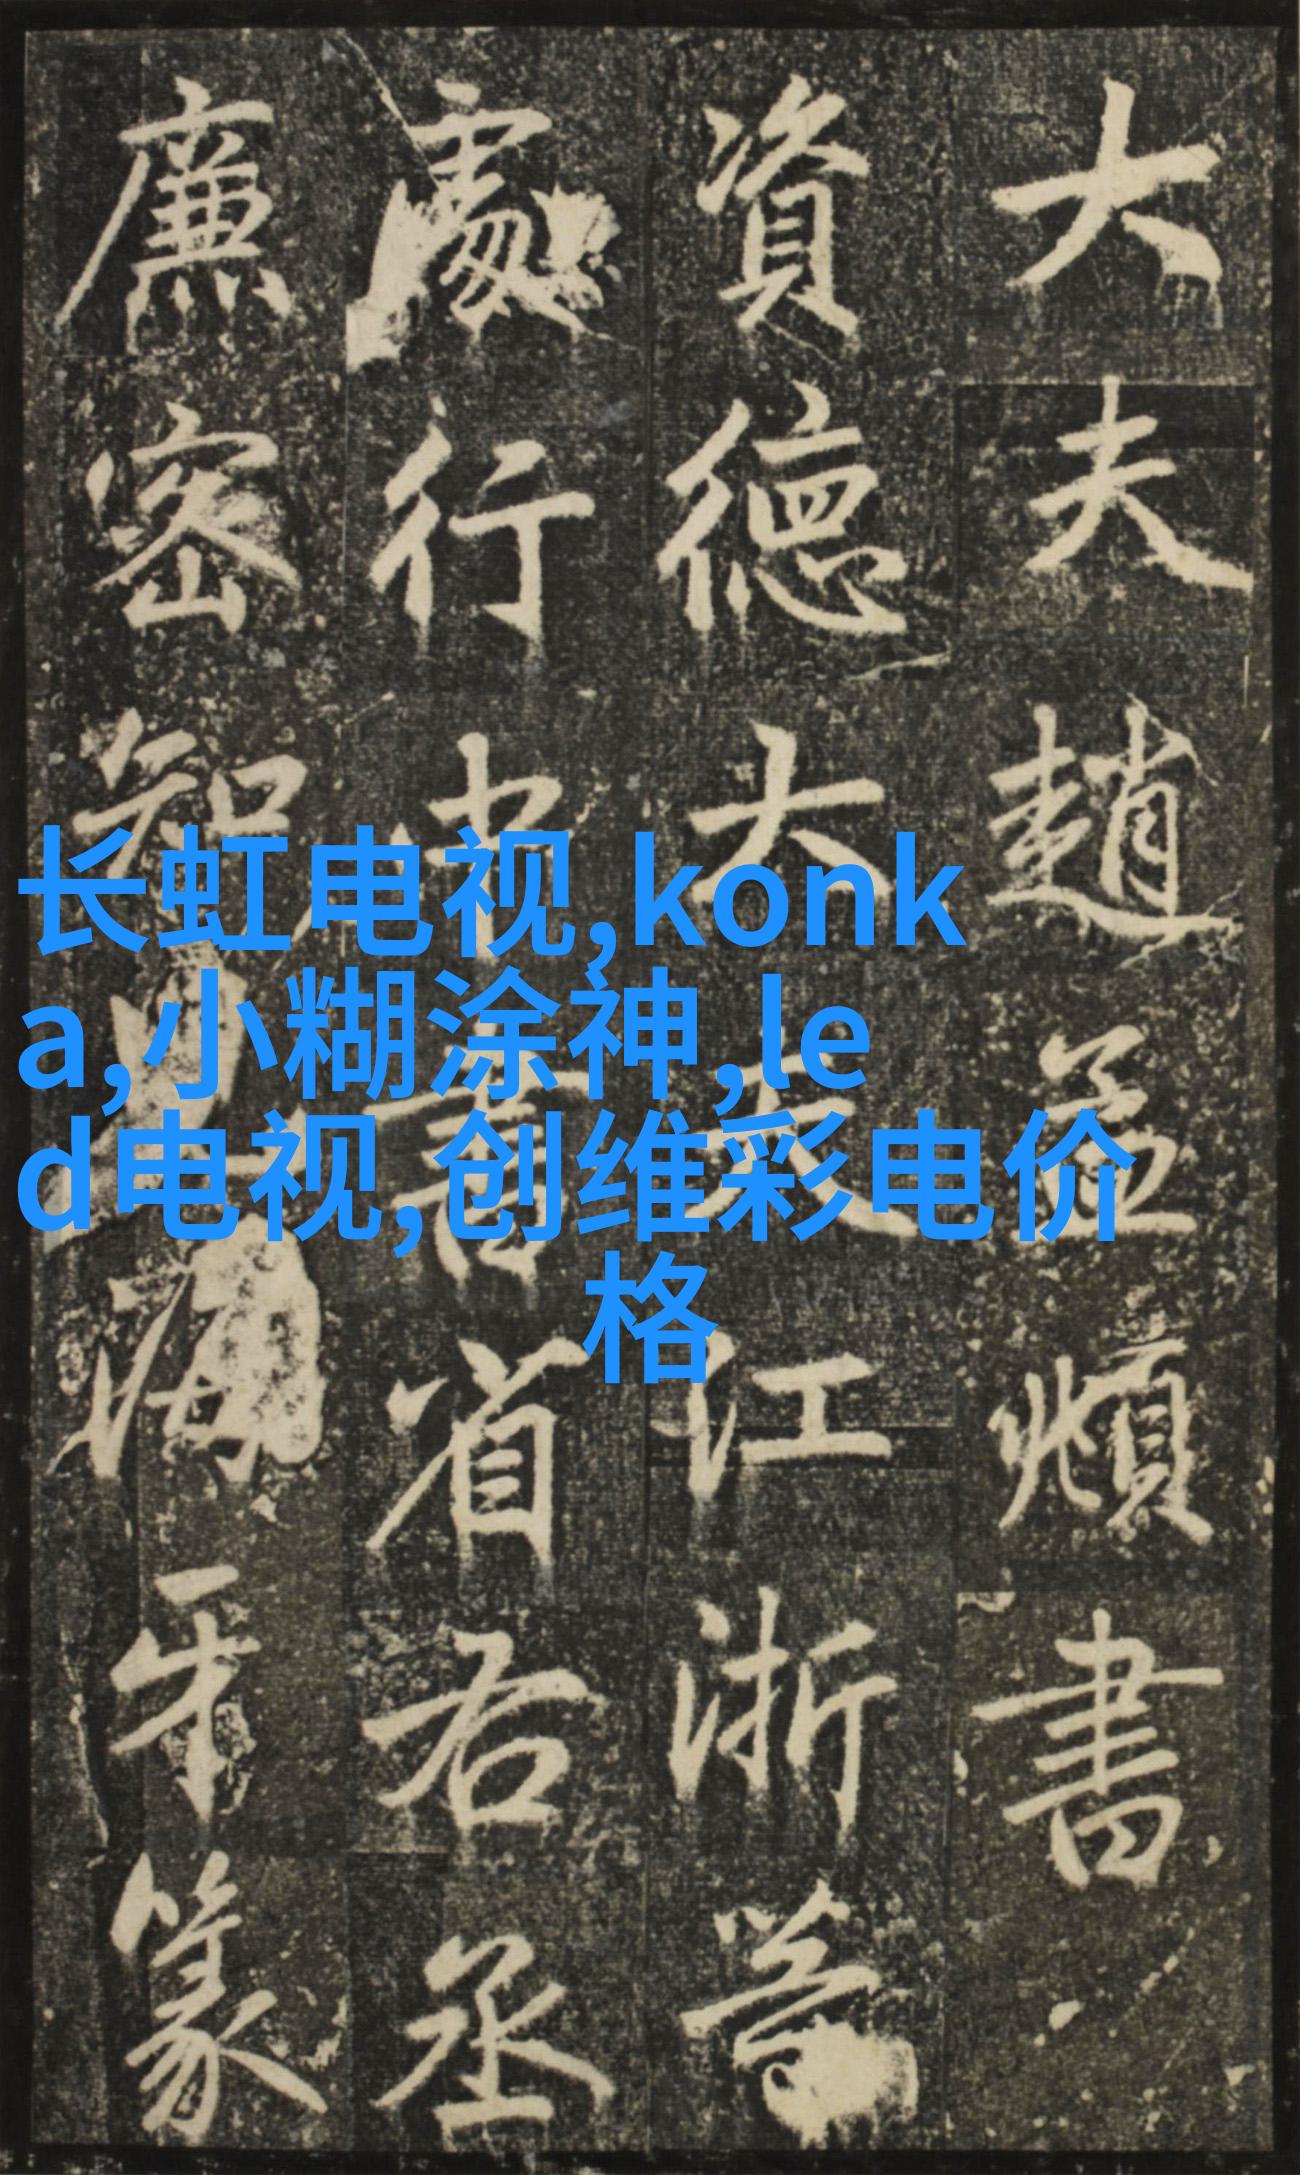 大夫趙孟頫書
資德大夫江浙等
處行中書省右丞
廉密知海牙篆
长虹电视,konk
a,小糊涂神,le
d电视,创维彩电价
格